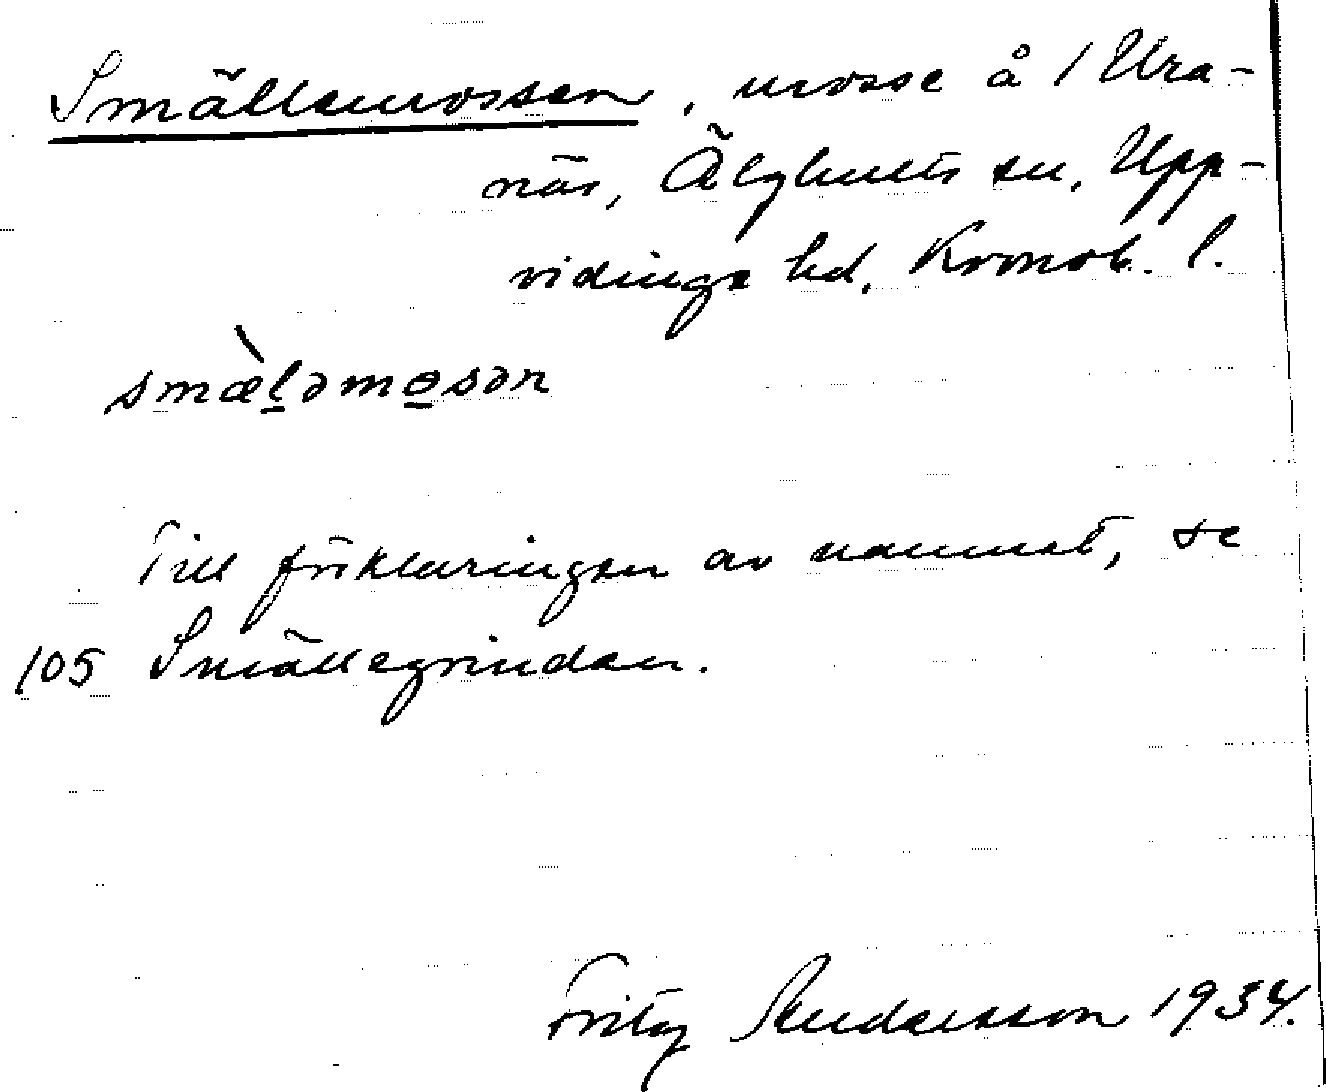 Smällemossen, mosse å 1 Ura-
näs, Älghults sn, Upp-
vidinge hd, Kronob. l.
smæ̀l̠əmo̠sən
Till förklaringen av namnet, se
105 Smällegrindan.
Fritz Andersson 1934.